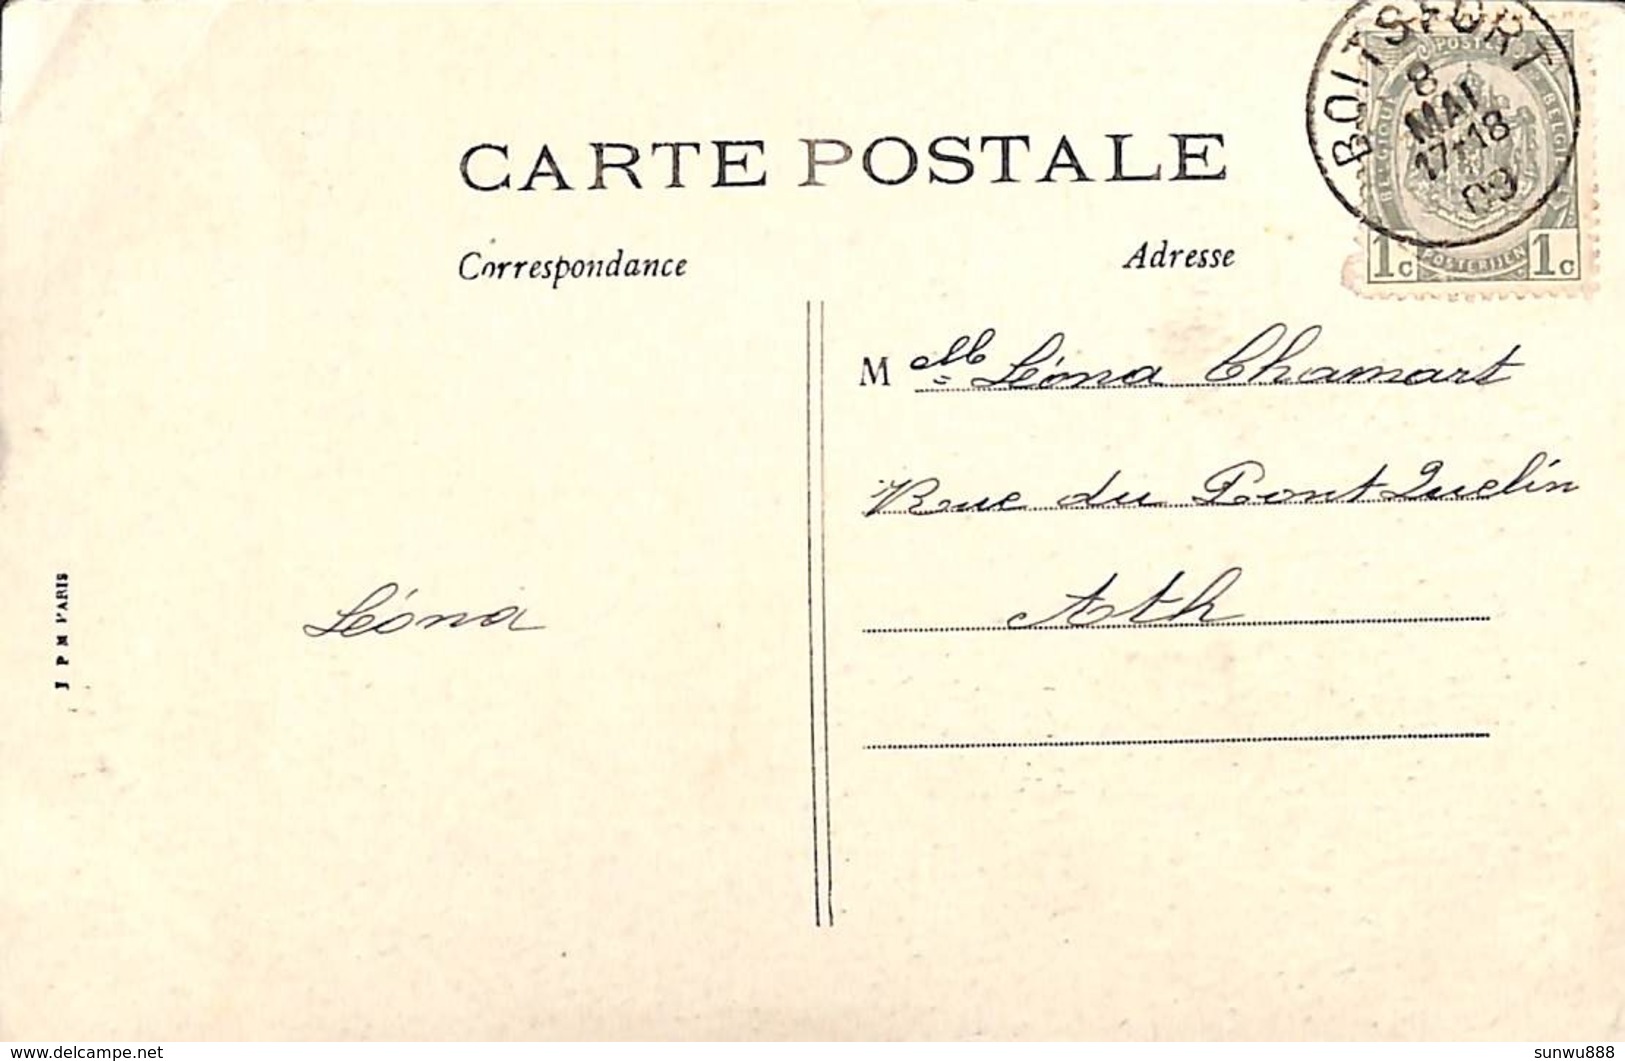 CARTE POSTALE
Correspondance
Adresse
BOITSFORT
8
MAI
17-18
09
POSTES
BELGIQUE
BELGIE
POSTERIJEN
1c
1c
M elle Léona Chamart
Rue du Pont Quelin
Ath
Léona
J P M PARIS
delcampe.net
sunwu888